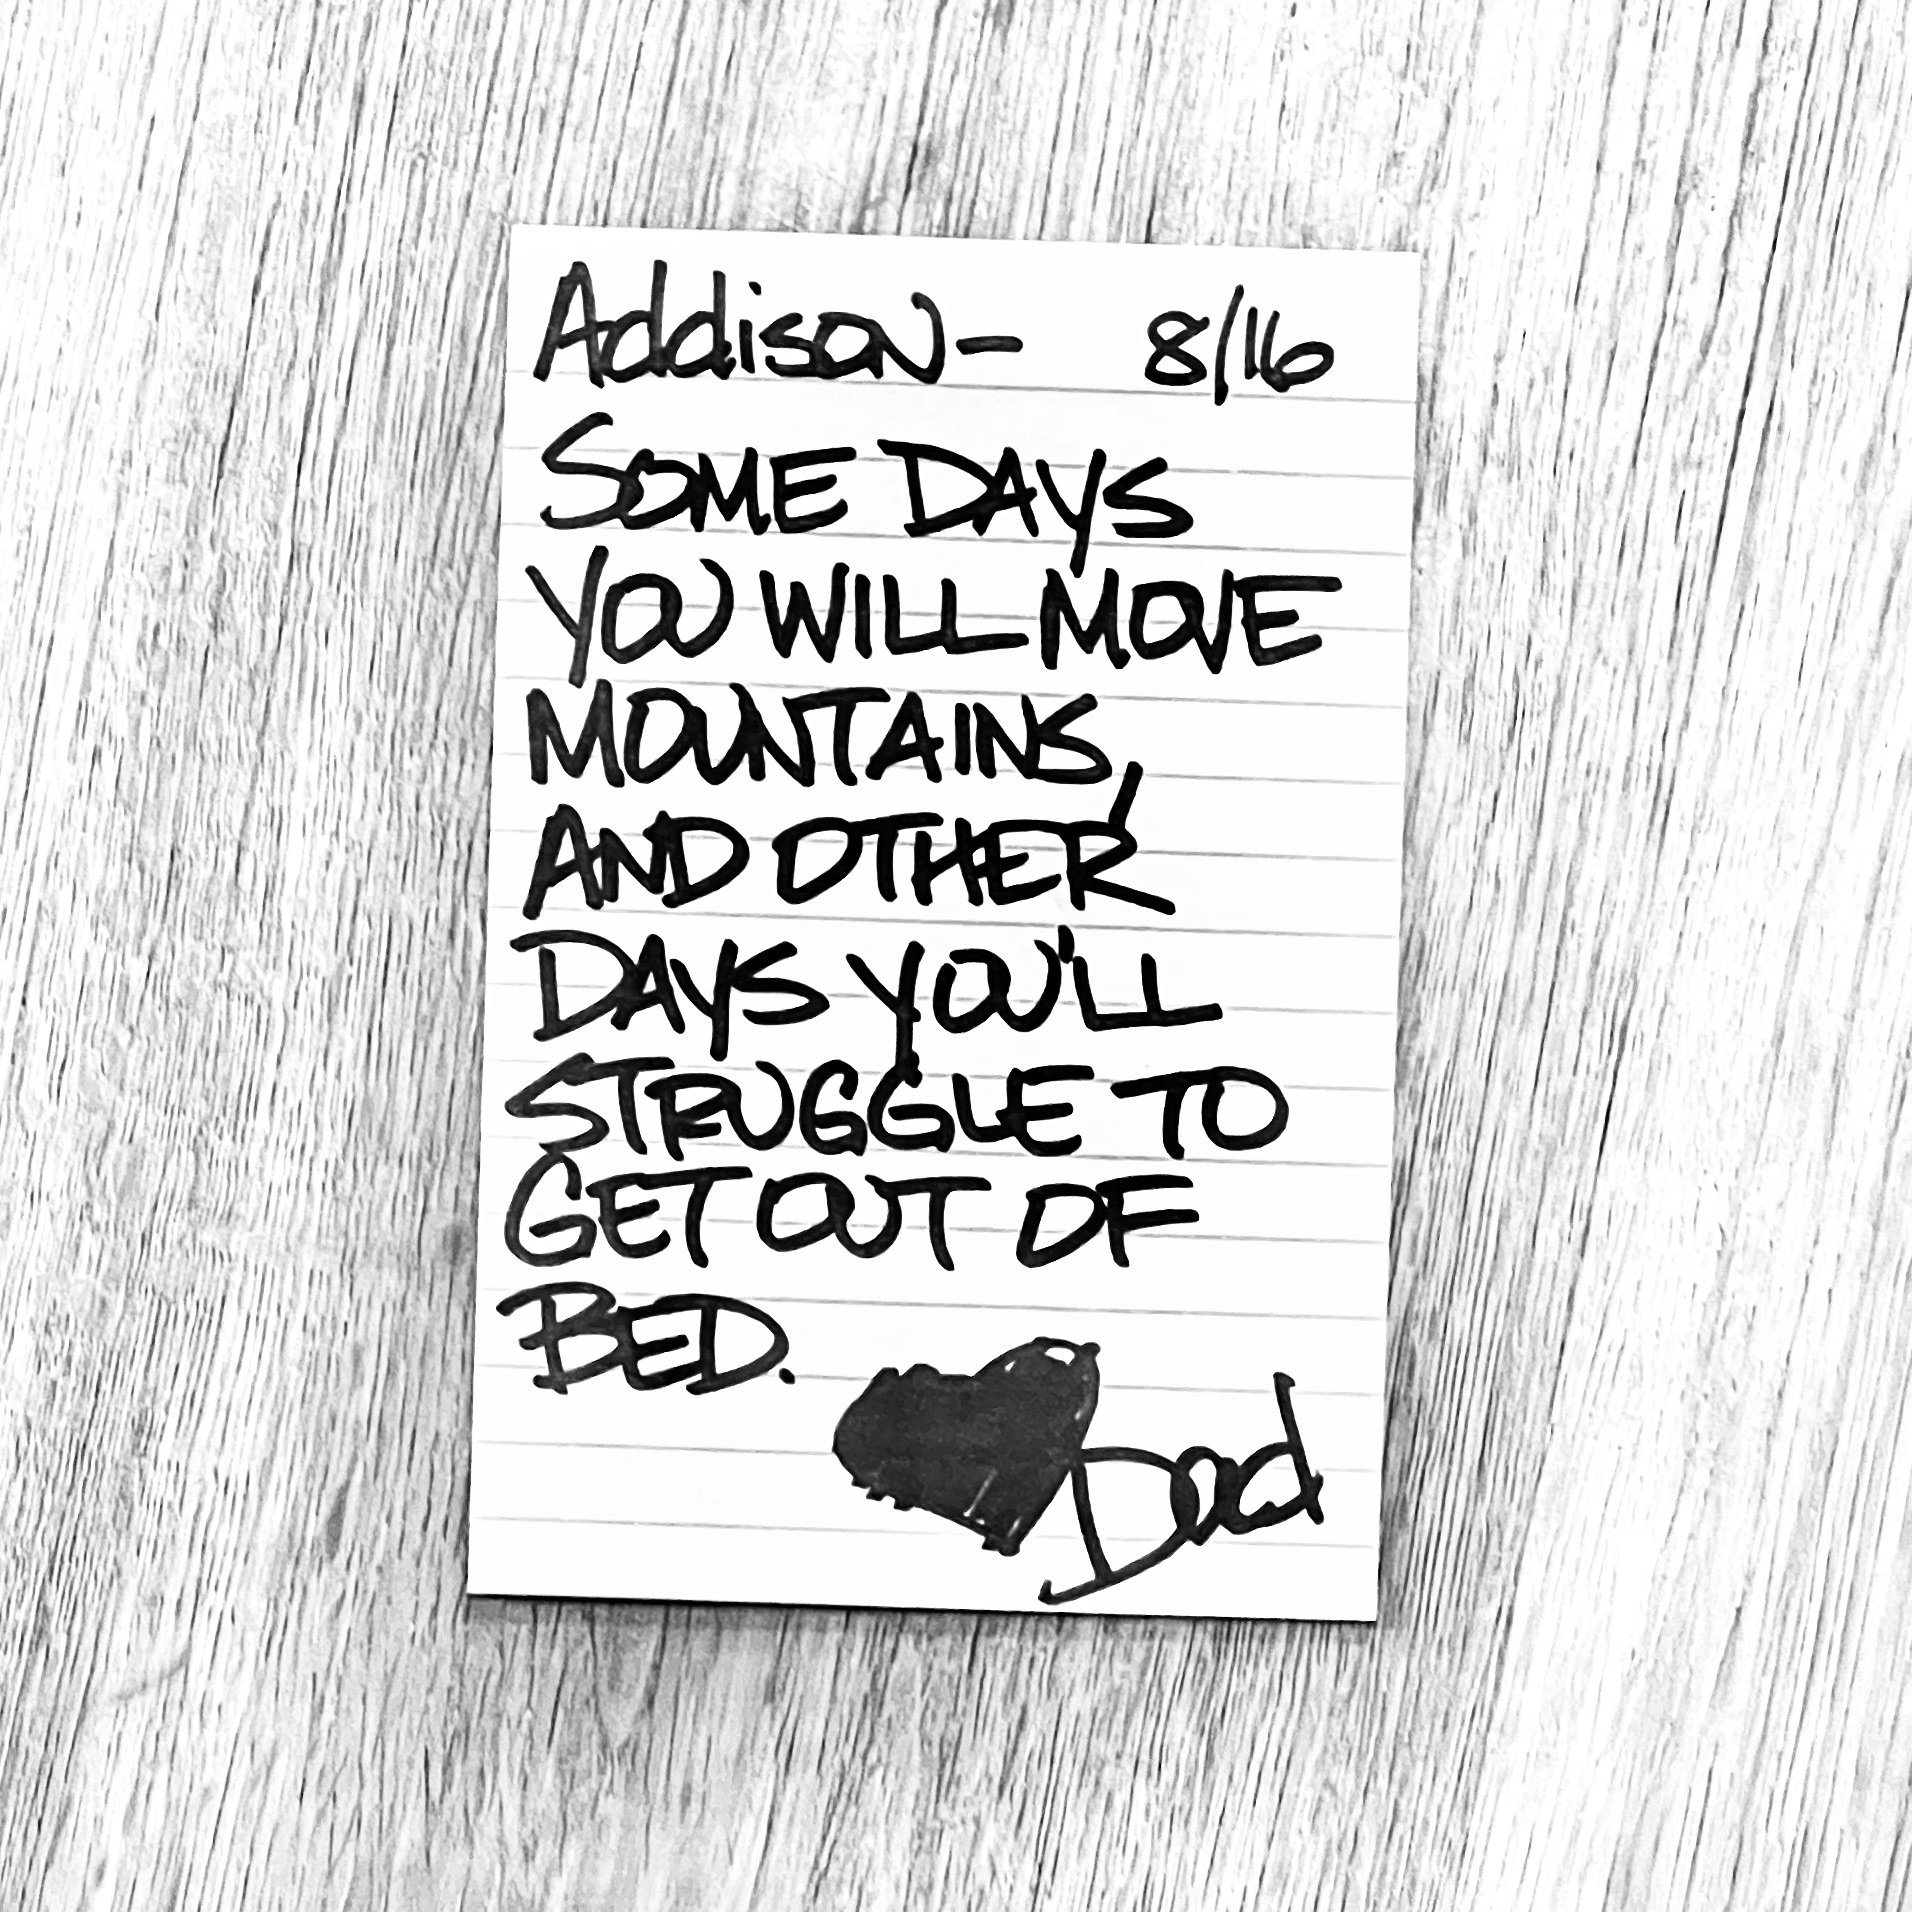 Addison- 8/16
SOME DAYS
YOU WILL MOVE
MOUNTAINS,
AND OTHER
DAYS YOU'LL
STRUGGLE TO
GET OUT OF
BED.
Dad